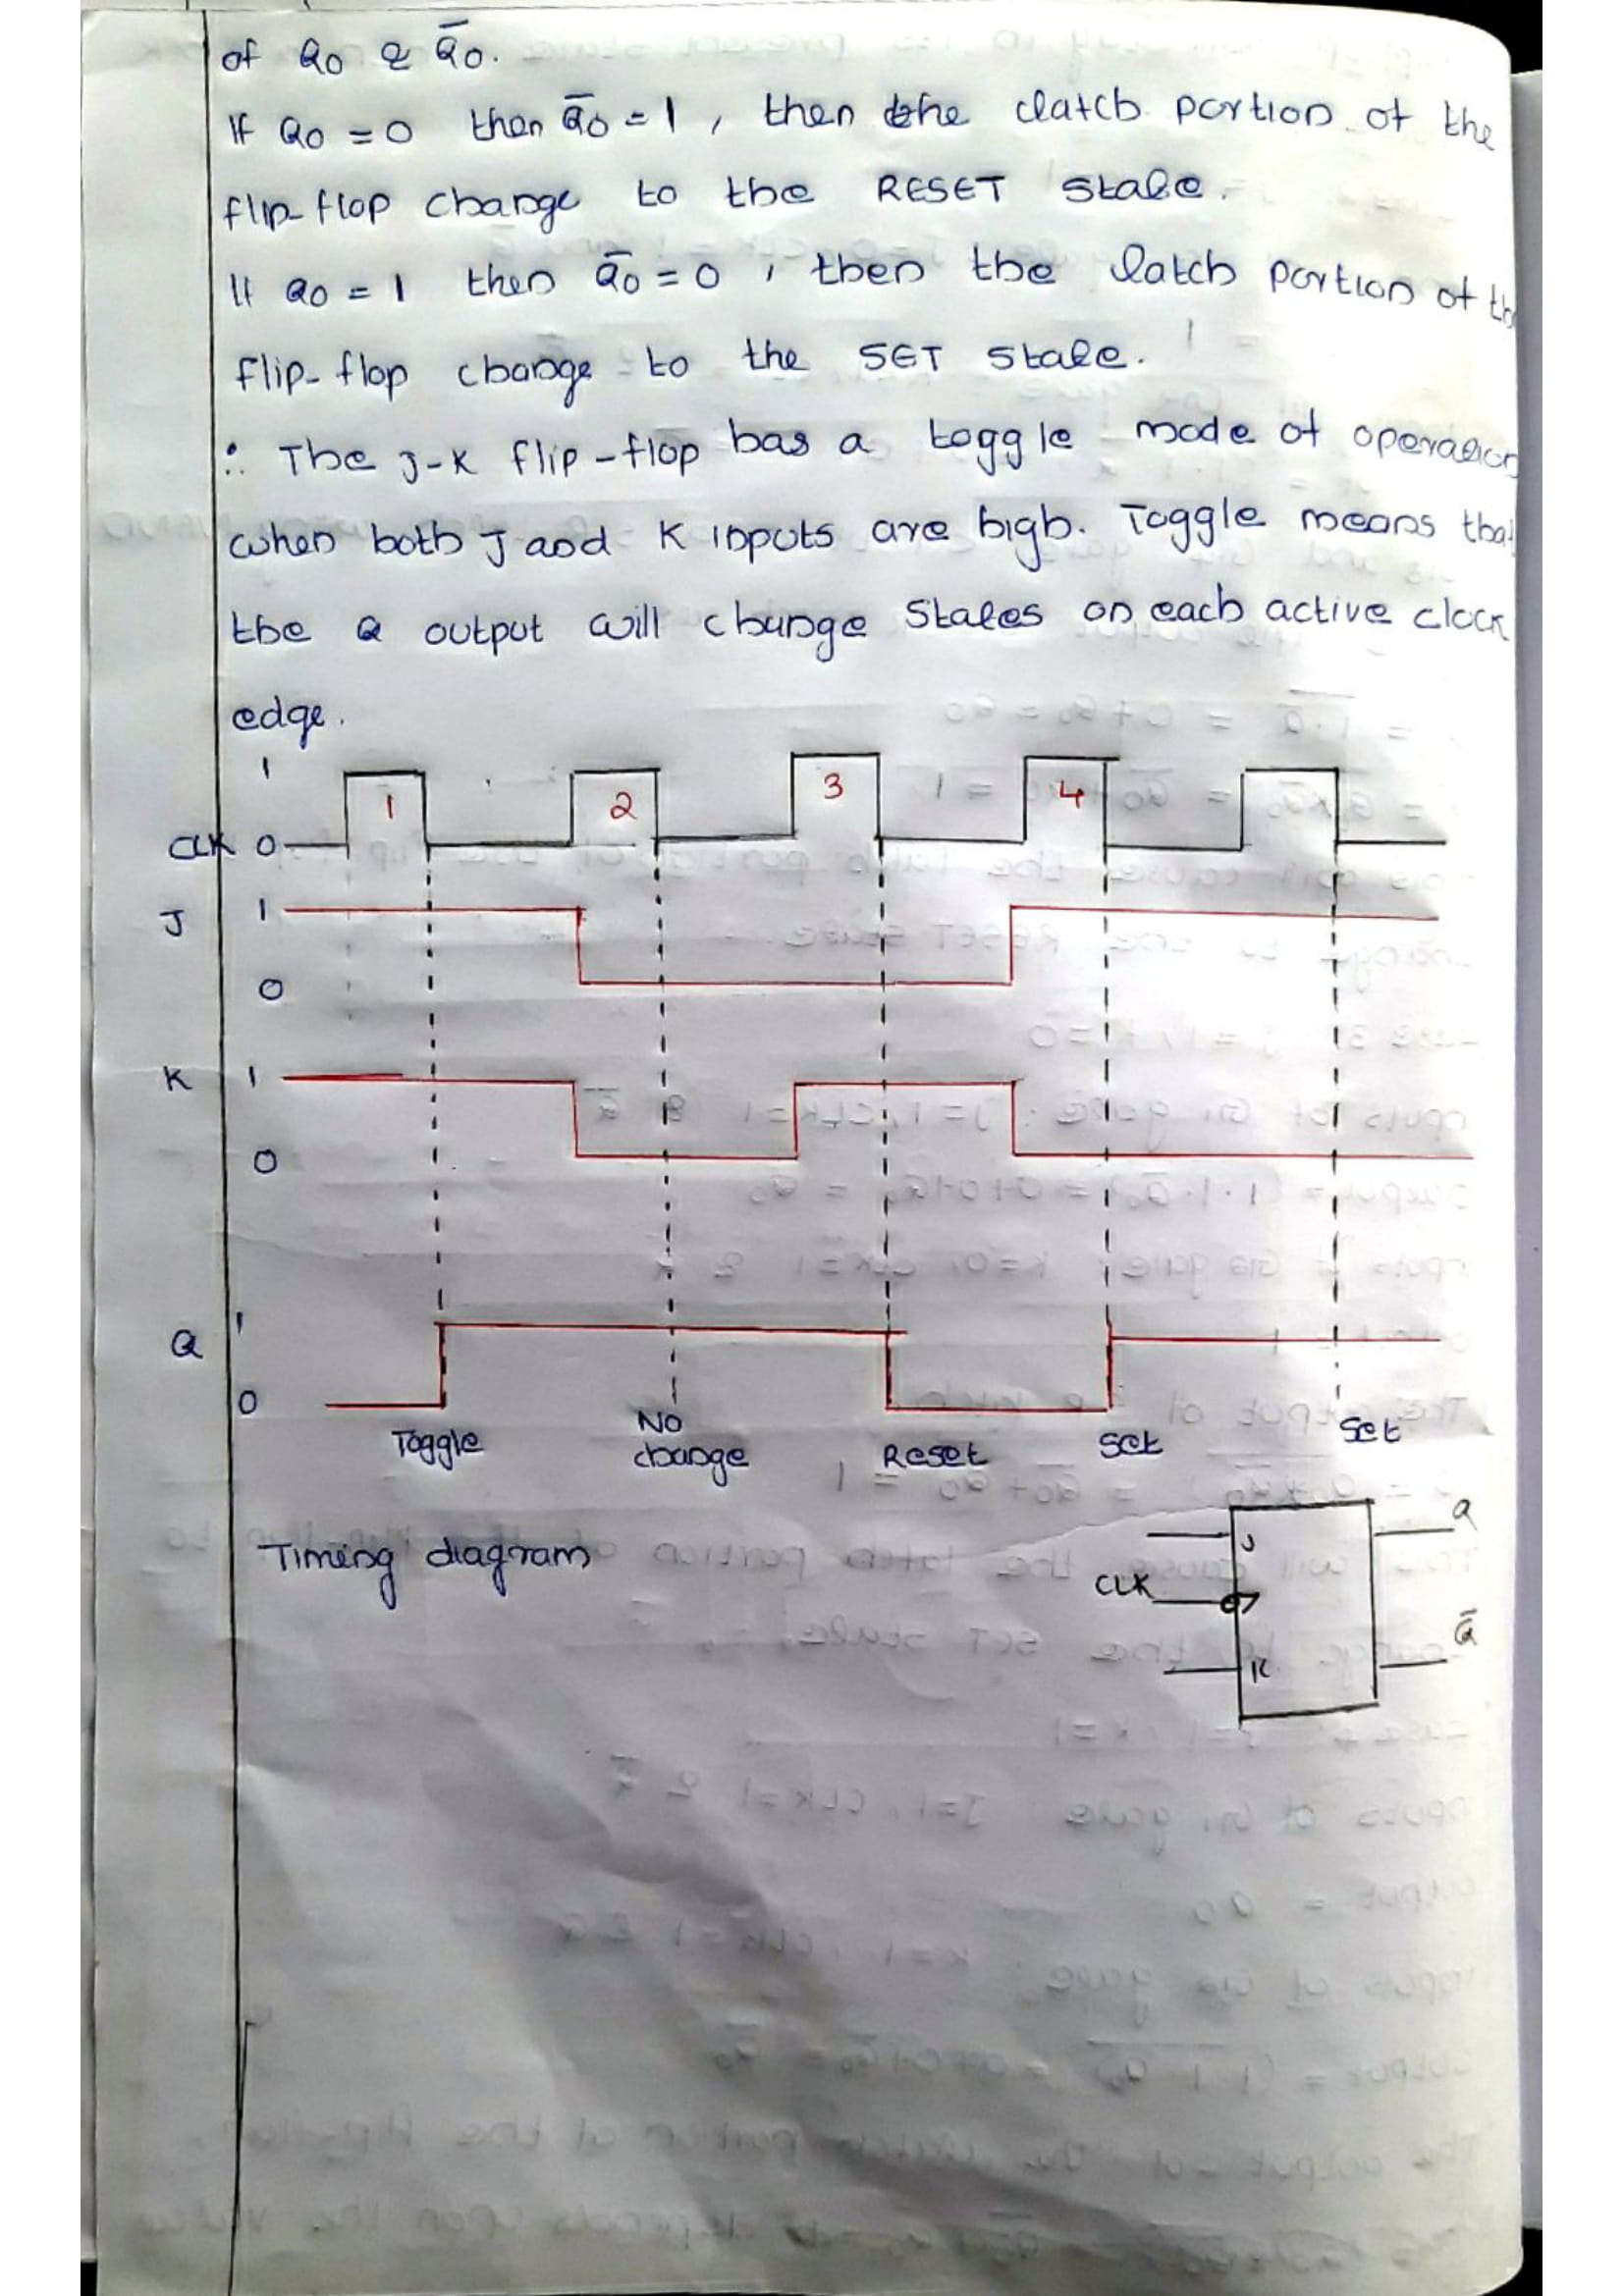 of Q0 & Q̄0.
If Q0 = 0 then Q̄0 = 1, then the latch portion of the
flip-flop change to the RESET state.
If Q0 = 1 then Q̄0 = 0, then the latch portion of the
flip-flop change to the SET state.
∴ The J-K flip-flop has a toggle mode of operation
when both J and K inputs are high. Toggle means that
the Q output will change states on each active clock
edge.
1
1 2 3 4
CLK 0
J 1
0
K 1
0
Q 1
0
Toggle No change Reset Set Set
Timing diagram
J Q
CLK
K Q̄